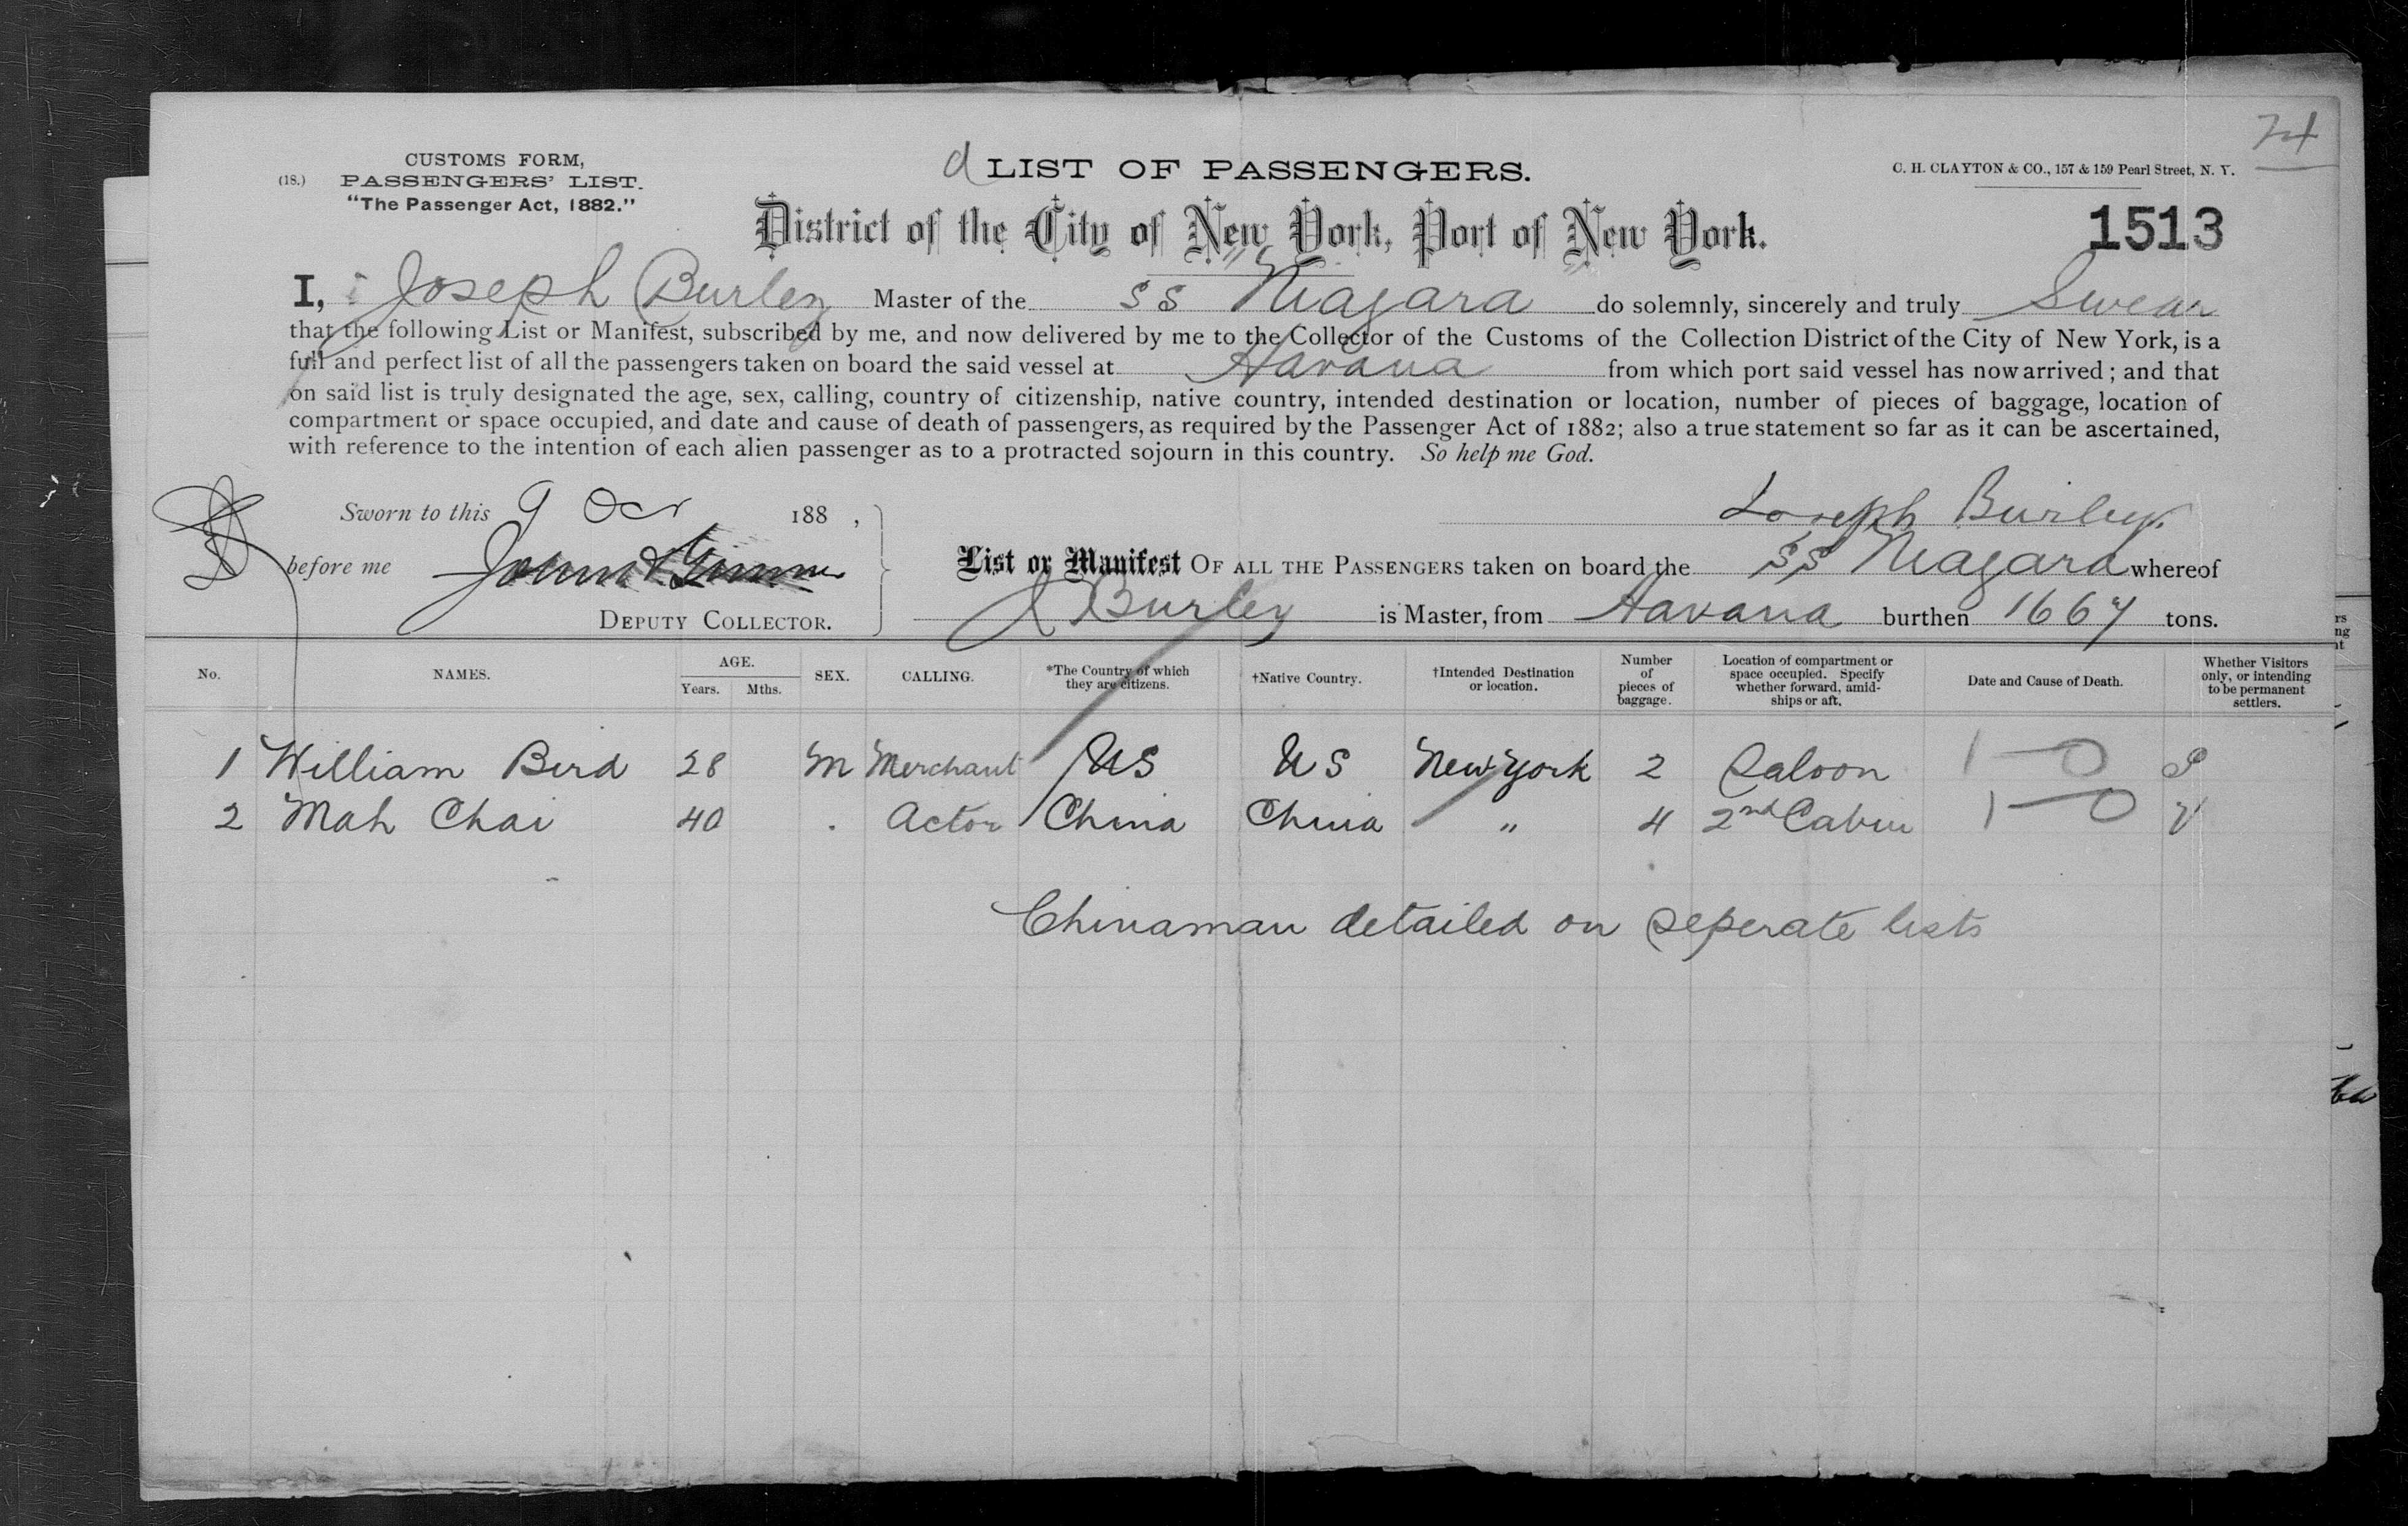 74
CUSTOMS FORM,
(18.) PASSENGERS' LIST.
"The Passenger Act, 1882."
d LIST OF PASSENGERS.
C. H. CLAYTON & CO., 157 & 159 Pearl Street, N. Y.
District of the City of New York, Port of New York.
1513
I, Joseph Burley Master of the SS Niagara do solemnly, sincerely and truly Swear
that the following List or Manifest, subscribed by me, and now delivered by me to the Collector of the Customs of the Collection District of the City of New York, is a
full and perfect list of all the passengers taken on board the said vessel at Havana from which port said vessel has now arrived; and that
on said list is truly designated the age, sex, calling, country of citizenship, native country, intended destination or location, number of pieces of baggage, location of
compartment or space occupied, and date and cause of death of passengers, as required by the Passenger Act of 1882; also a true statement so far as it can be ascertained,
with reference to the intention of each alien passenger as to a protracted sojourn in this country. So help me God.
Sworn to this 9 Oct 188 ,
Joseph Burley
before me
DEPUTY COLLECTOR.
List or Manifest OF ALL THE PASSENGERS taken on board the SS Niagara whereof
J Burley is Master, from Havana burthen 1667 tons.
No. NAMES. AGE. Years. Mths. SEX. CALLING. *The Country of which they are citizens. †Native Country. †Intended Destination or location. Number of pieces of baggage. Location of compartment or space occupied. Specify whether forward, amidships or aft. Date and Cause of Death. Whether Visitors only, or intending to be permanent settlers.
1 William Bird 28 M Merchant US US New York 2 Saloon 1—0 P
2 Mah Chai 40 . Actor China China " 4 2nd Cabin 1—0 V
Chinaman detailed on seperate lists